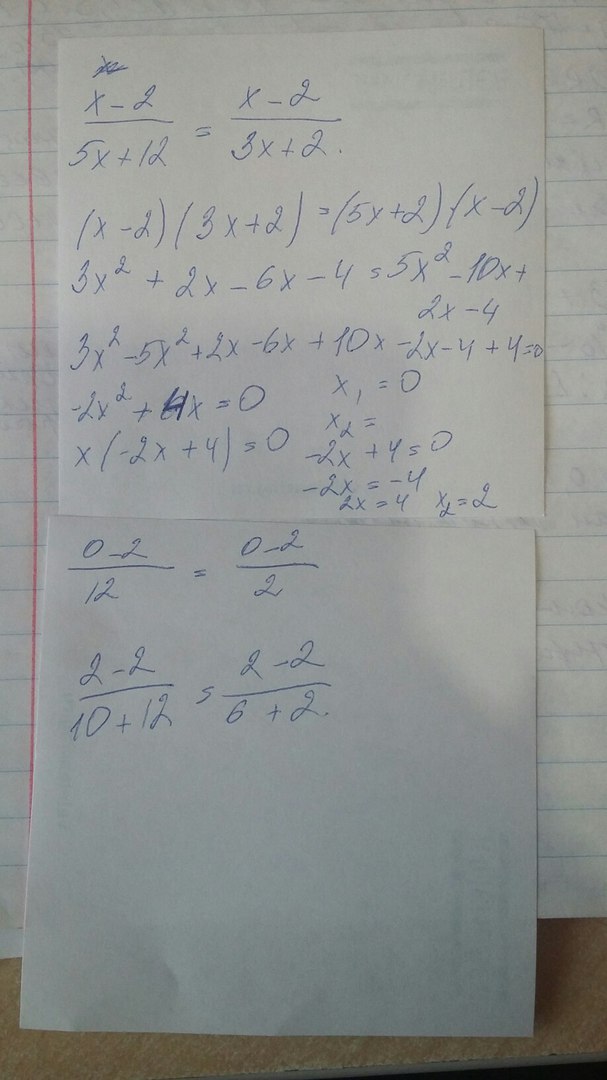 x
x-2/5x+12 = x-2/3x+2.
(x-2)(3x+2)=(5x+2)(x-2)
3x²+2x-6x-4=5x²-10x+
2x-4
3x²-5x²+2x-6x+10x-2x-4+4=0
-2x²+4x=0
x(-2x+4)=0
x₁=0
x₂=
-2x+4=0
-2x=-4
2x=4 x₂=2
0-2/12 = 0-2/2
2-2/10+12 = 2-2/6+2.